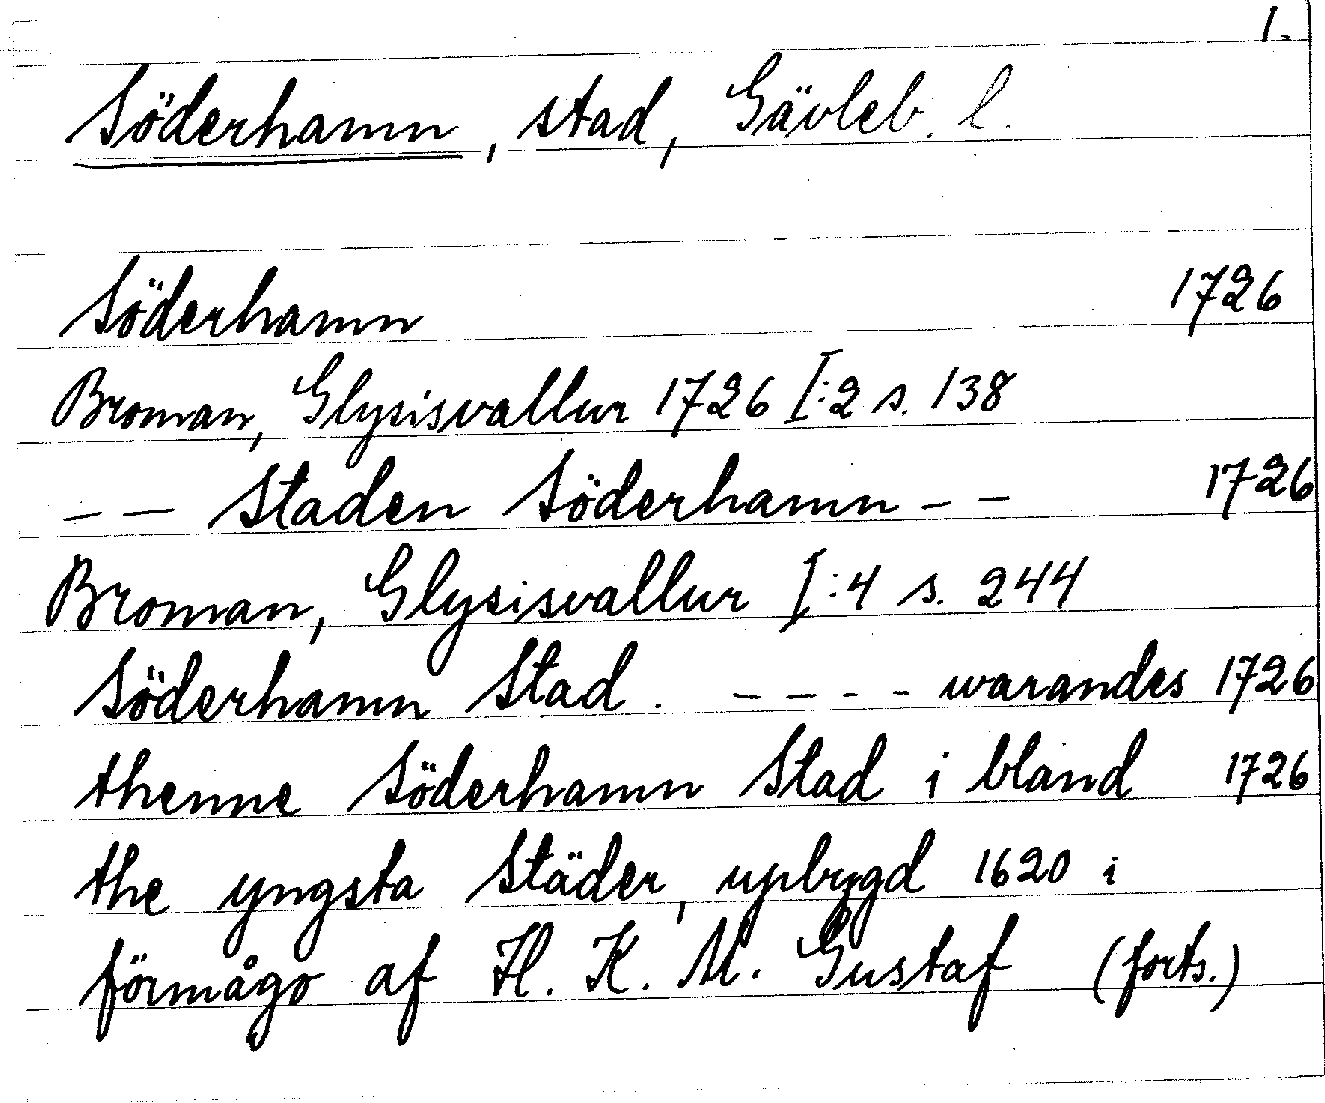 1.
Söderhamn, stad, Gävleb. l.
Söderhamn 1726
Broman, Glysisvallur 1726 I:2 s. 138
– – Staden Söderhamn – – 1726
Broman, Glysisvallur I:4 s. 244
Söderhamn Stad. – – – – warandes 1726
thenne Söderhamn Stad i bland 1726
the yngsta Städer, upbygd 1620 i
förmågo af H. K. M. Gustaf (forts.)